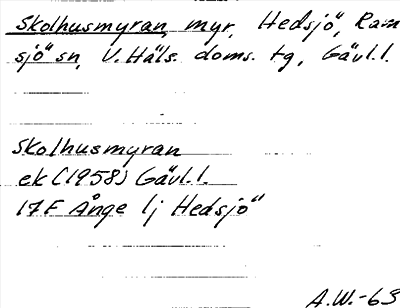 Skolhusmyran, myr, Hedsjö, Ram
sjö sn, V. Häls. doms. tg, Gävl.l.
Skolhusmyran
ek (1958) Gävl.l.
17F Ånge lj Hedsjö
A.W.-69